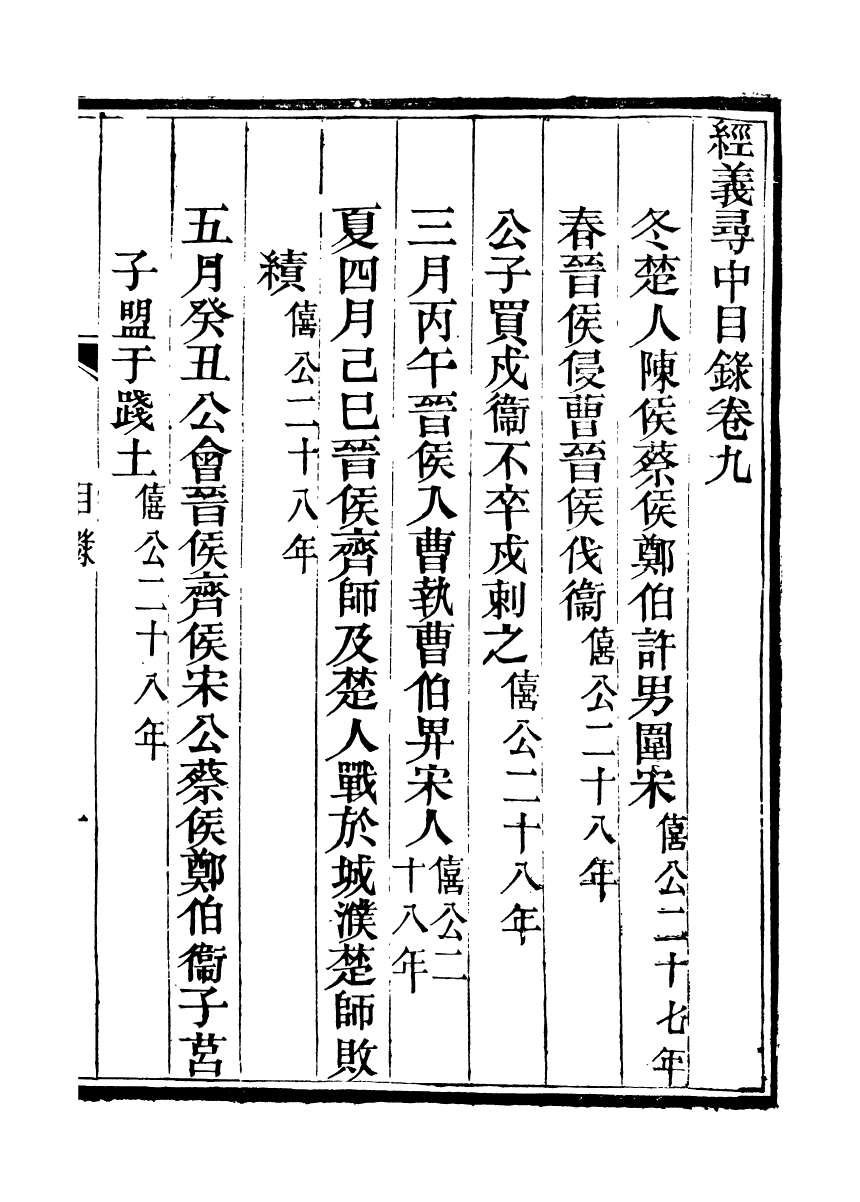 經義尋中目錄卷九
冬楚人陳侯蔡侯鄭伯許男圍宋僖公二十七年
春晉侯侵曹晉侯伐衞僖公二十八年
公子買戍衞不卒戍刺之僖公二十八年
三月丙午晉侯入曹執曹伯畀宋人僖公二十八年
夏四月己巳晉侯齊師及楚人戰於城濮楚師敗
績僖公二十八年
五月癸丑公會晉侯齊侯宋公蔡侯鄭伯衞子莒
子盟于踐土僖公二十八年
目錄
一